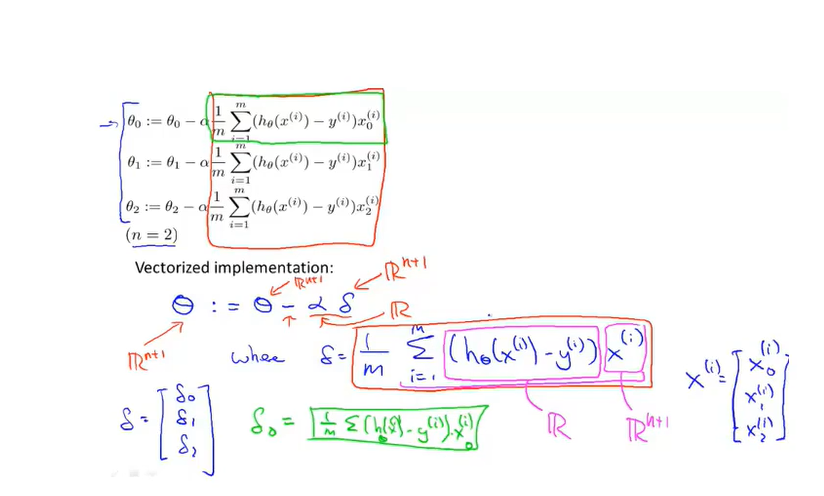 θ₀ := θ₀ − α 1/m ∑_{i=1}^{m} (h_θ(x^{(i)}) − y^{(i)}) x_0^{(i)}
θ₁ := θ₁ − α 1/m ∑_{i=1}^{m} (h_θ(x^{(i)}) − y^{(i)}) x_1^{(i)}
θ₂ := θ₂ − α 1/m ∑_{i=1}^{m} (h_θ(x^{(i)}) − y^{(i)}) x_2^{(i)}
(n = 2)
Vectorized implementation:
ℝ^{n+1} ℝ^{n+1}
θ := θ − α δ
ℝ
ℝ^{n+1}
where δ = 1/m ∑_{i=1}^{m} (h_θ(x^{(i)}) − y^{(i)}) x^{(i)}
x^{(i)} = [x_0^{(i)} x_1^{(i)} x_2^{(i)}]
δ = [δ₀ δ₁ δ₂]
δ₀ = 1/m ∑ (h_θ(x^{(i)}) − y^{(i)}) · x_0^{(i)}
ℝ ℝ^{n+1}